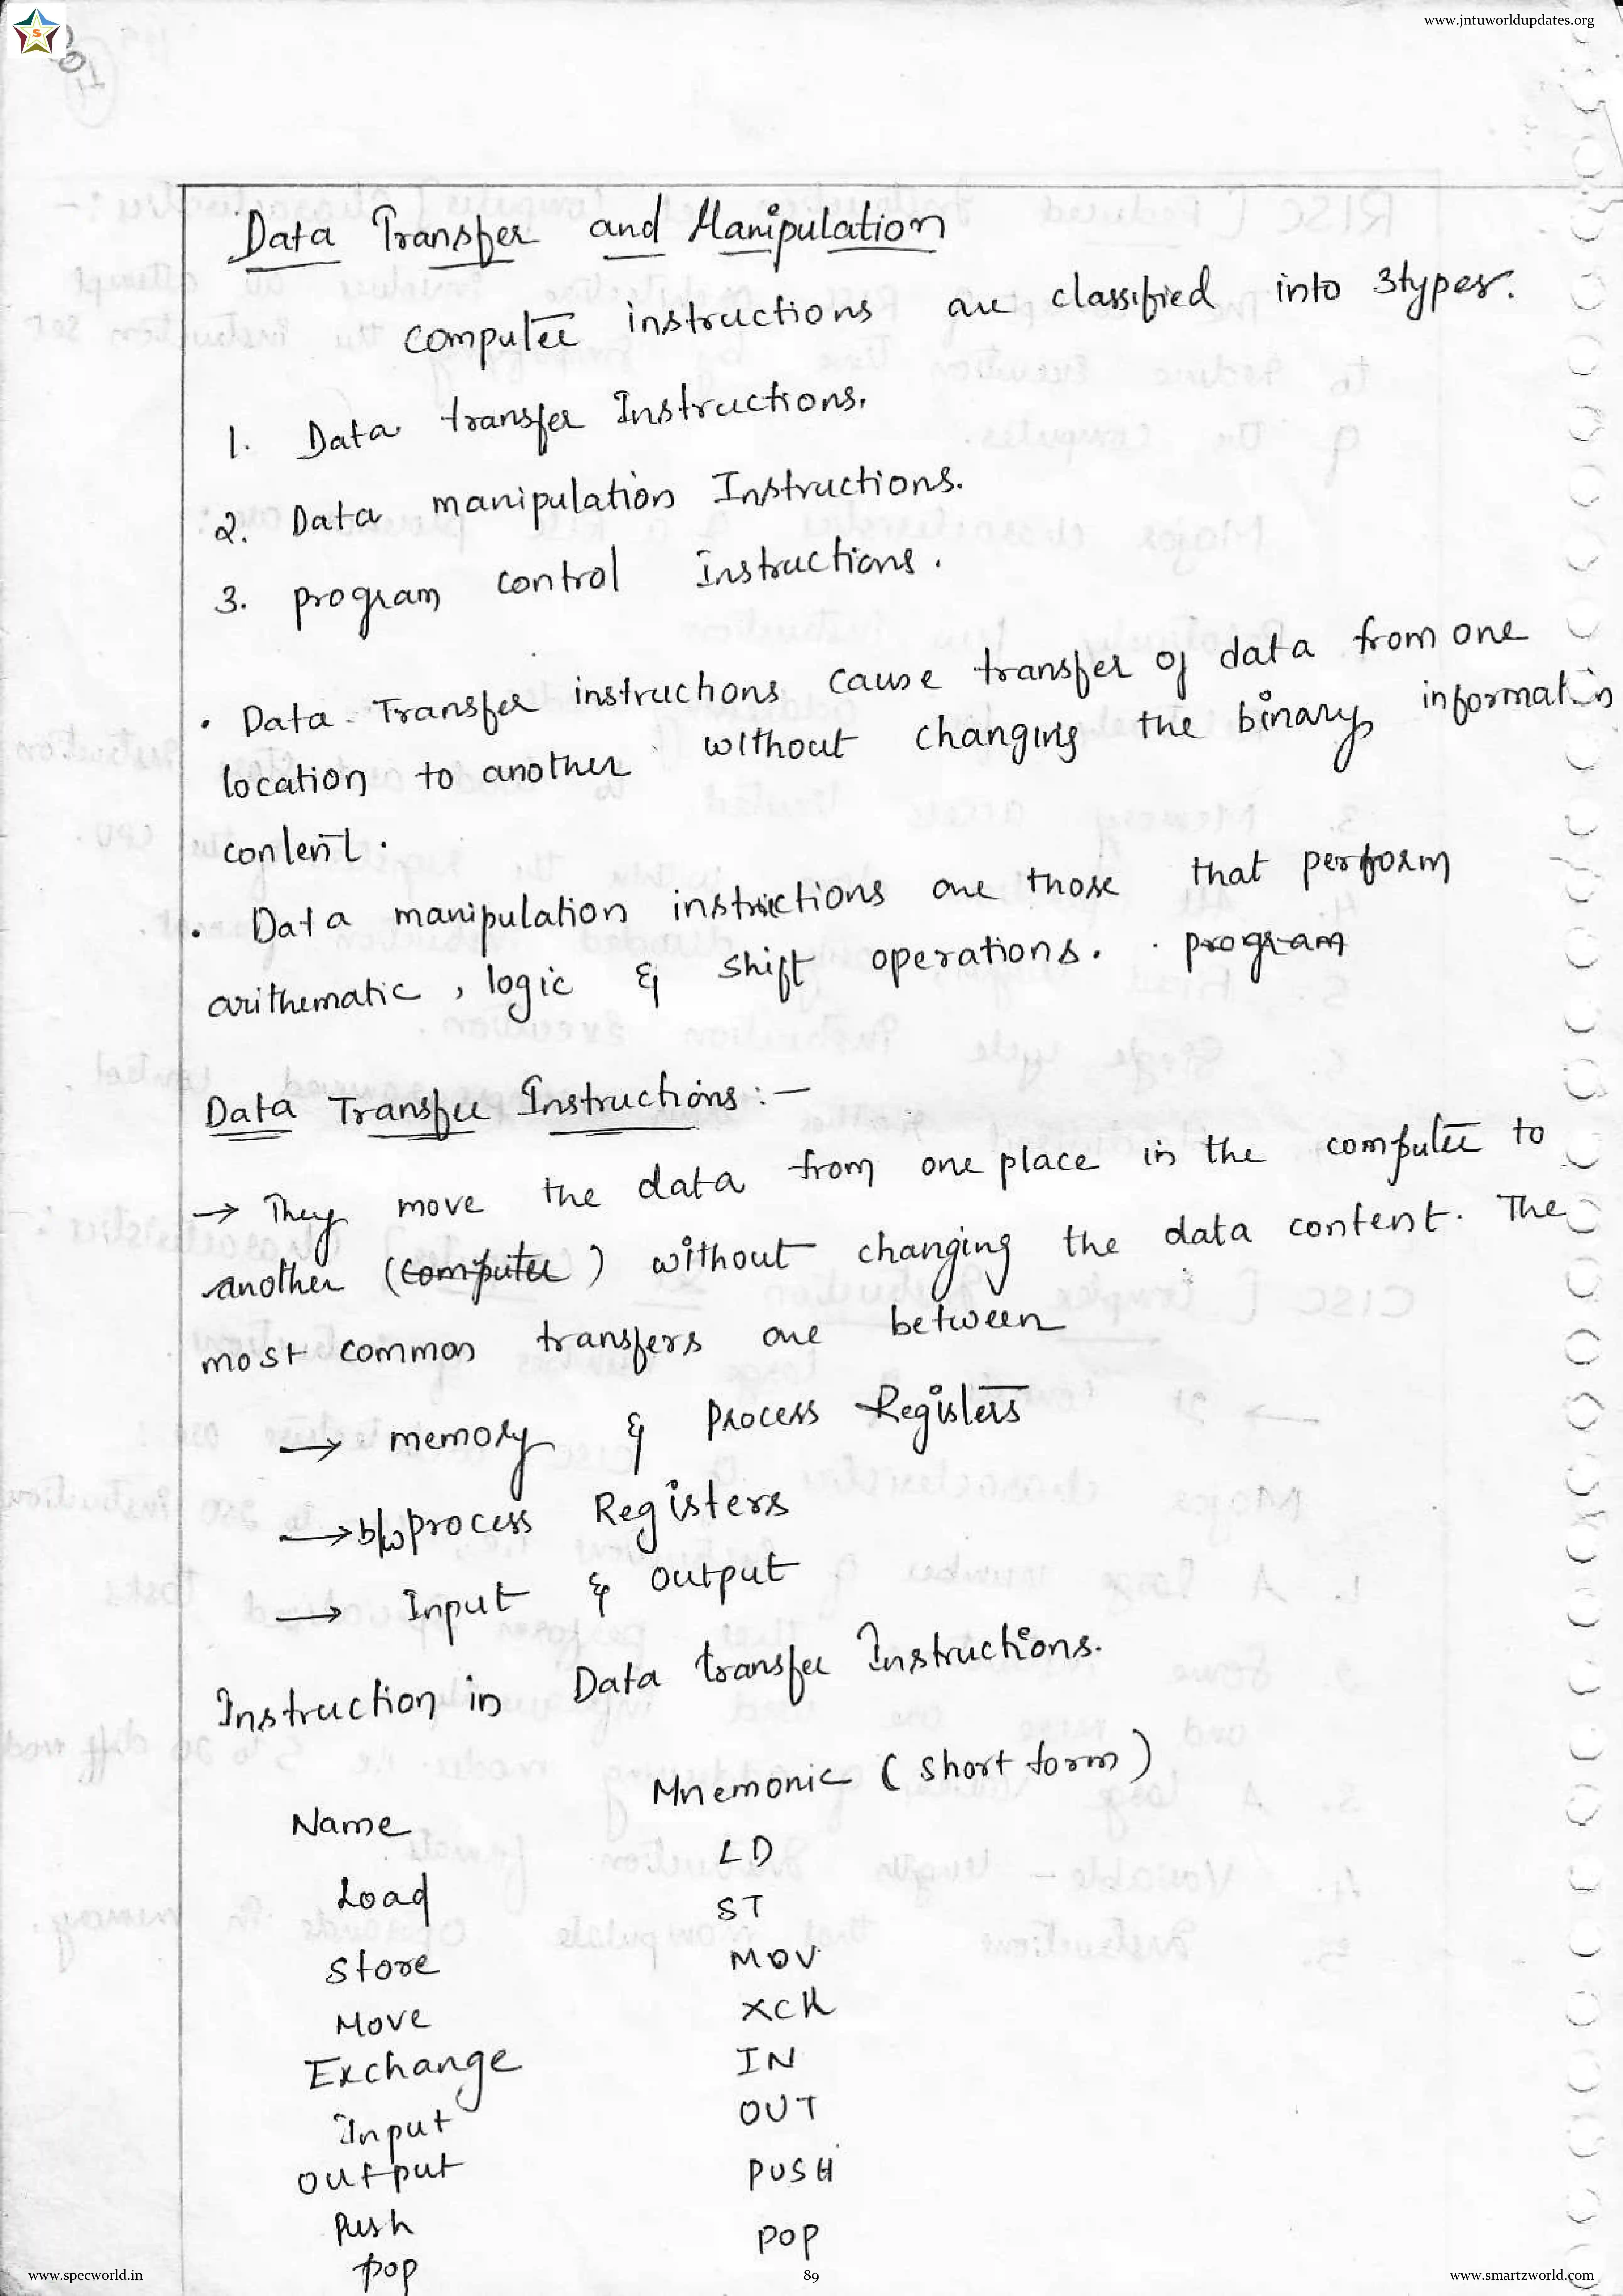 www.jntuworldupdates.org
S
Data Transfer and Manipulation
computer instructions are classified into 3types.
1. Data transfer Instructions.
2. Data manipulation Instructions.
3. program control Instructions.
• Data Transfer instructions cause transfer of data from one
location to another without changing the binary information
content.
• Data manipulation instructions are those that perform
arithematic, logic & shift operations. program
Data Transfer Instructions :-
→ They move the data from one place in the computer to
another (computer) without changing the data content. The
most common transfers are between
→ memory & process Registers
→ b/w process Registers
→ Input & output
Instruction in Data transfer Instructions.
Name Mnemonic (short form)
Load LD
Store ST
Move MOV
Exchange XCH
Input IN
output OUT
Push PUSH
pop POP
www.specworld.in 89 www.smartzworld.com